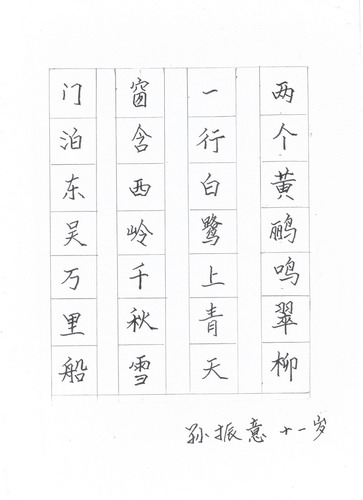 两个黄鹂鸣翠柳
一行白鹭上青天
窗含西岭千秋雪
门泊东吴万里船
孙振意 十一岁